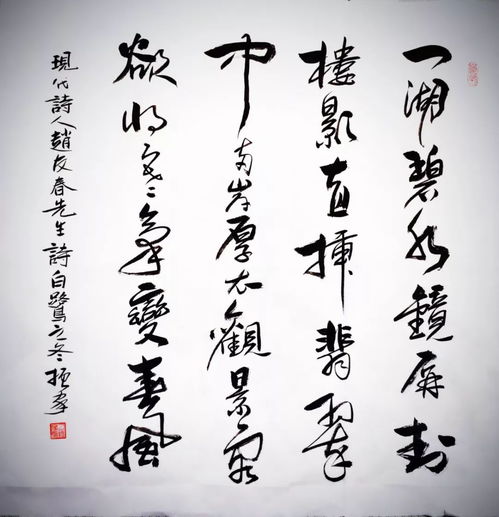 一湖碧水鏡屏封
樓影直插翡翠
中两岸厚衣觀景客
欲将寒氣變春風
現代詩人趙友春先生詩白鷺立冬振